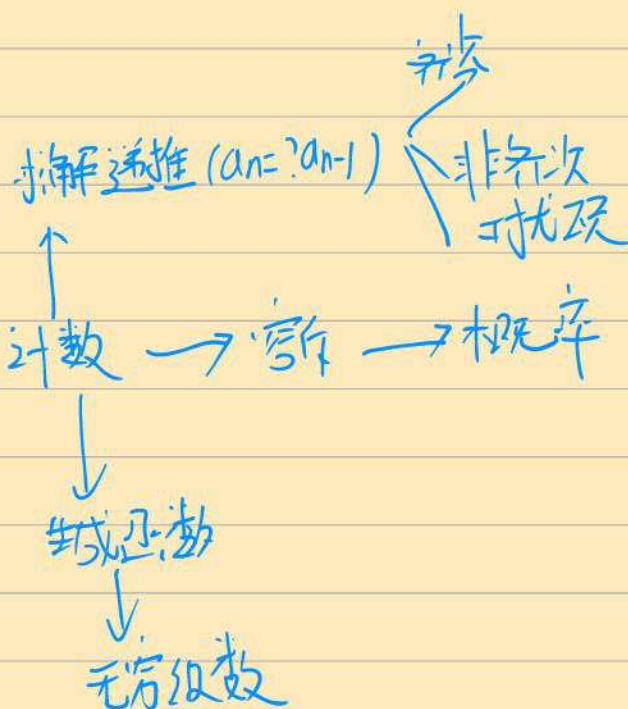 齐次
求解递推 (an=?an-1)
非齐次
计数 → 容斥 → 概率
生成函数
无穷级数